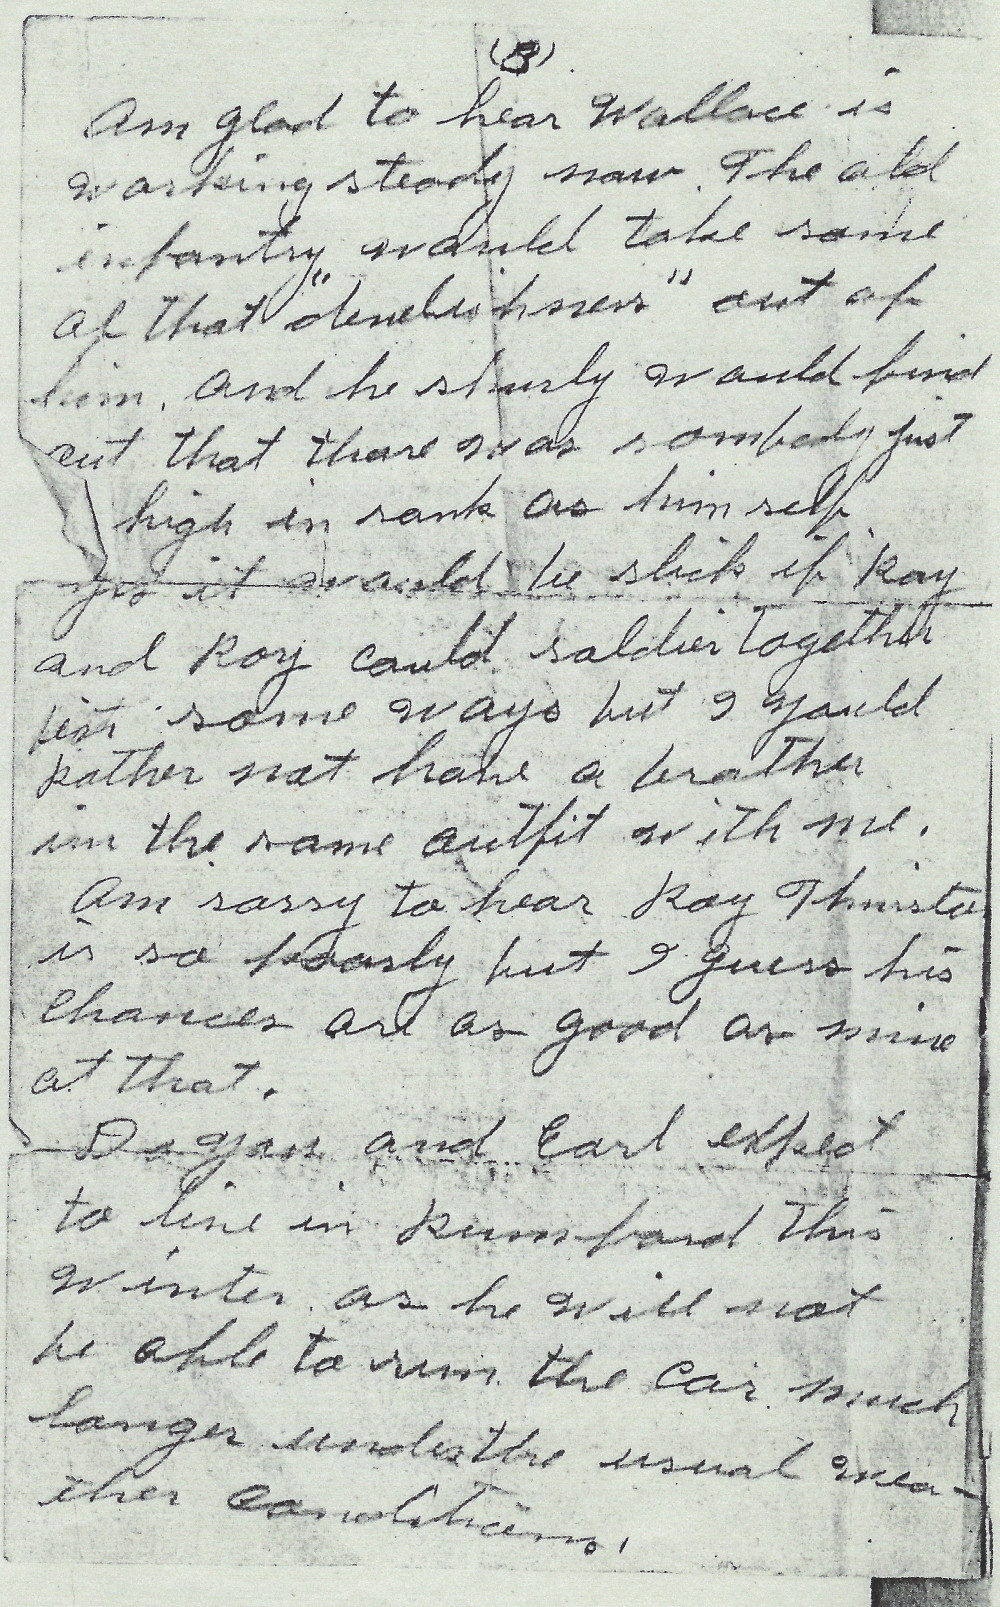 (8)
Am glad to hear Wallace is
working steady now. The old
infantry would take some
of that "develishness" out of
him, and he shurly would find
out that thare was sombody just
high in rank as himself.
Yes it would be slick if Ray
and Roy could soldier together
in some ways but I would
rather not have a brother
in the same outfit with me.
Am sorry to hear Ray
is so poorly but I guess his
chances are as good as mine
at that.
and Earl expect
to live in Rumford this
winter as he will not
be able to run the car much
longer under the usual wea-
ther conditions.